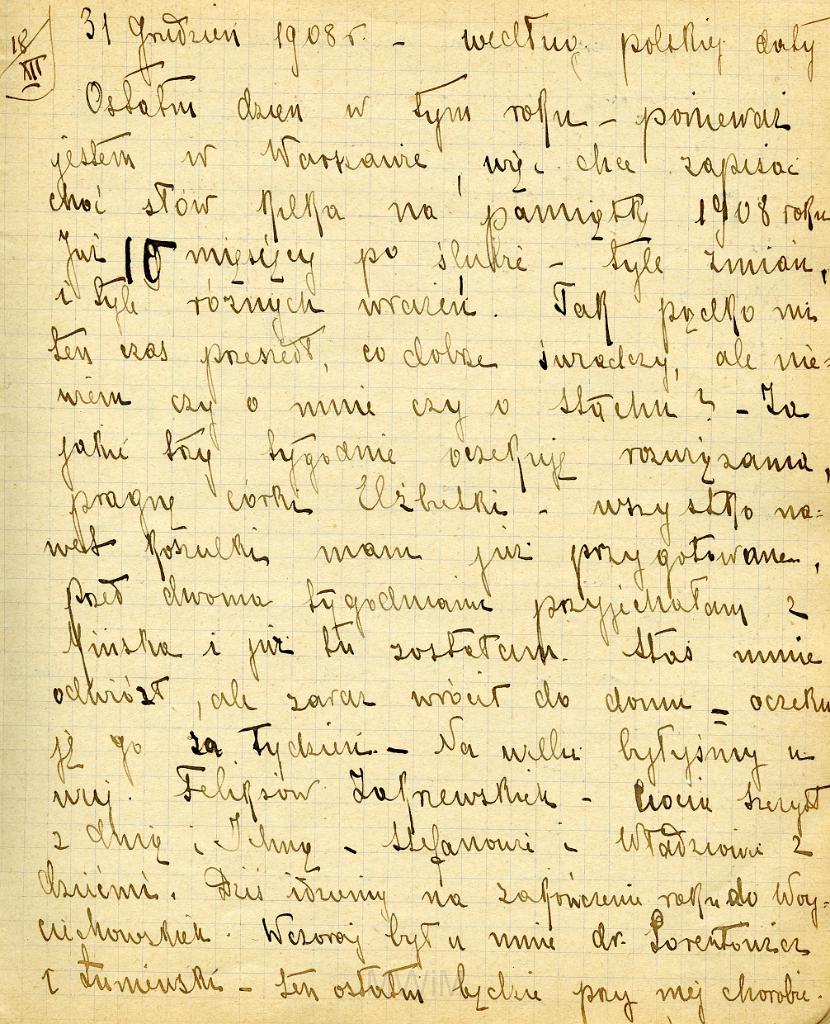 18/XII
31 Grudzień 1908 r. - według polskiej daty
Ostatni dzień w tym roku - ponieważ
jestem w Warszawie, więc chcę zapisać
choć słów kilka na pamiątkę 1908 roku
Już 10 miesięcy po ślubie - tyle zmian,
i tyle różnych wrażeń. Tak prędko mi
ten czas przeszedł, co dobrze świadczy, ale nie-
wiem czy o mnie czy o Stachu? - Za
jakie trzy tygodnie oczekuję rozwiązania,
pragnę córki Elżbietki - wszystko na-
wet koszulki mam już przygotowane,
przed dwoma tygodniami przyjechałam z
Mińska i już tu zostałam. Staś mnie
odwiózł, ale zaraz wrócił do domu - oczeku
ję go za tydzień. - Na wilii byłyśmy u
wuj. Feliksów Zakrzewskich - ciocia
z
i
- Stefanowie i Władziowie z
dziećmi. Dziś idziemy na zakończenie roku do Woy-
ciechowskich. Wczoraj był u mnie dr. Lorentowicz
i Łumiński - ten ostatni będzie przy mej chorobie.